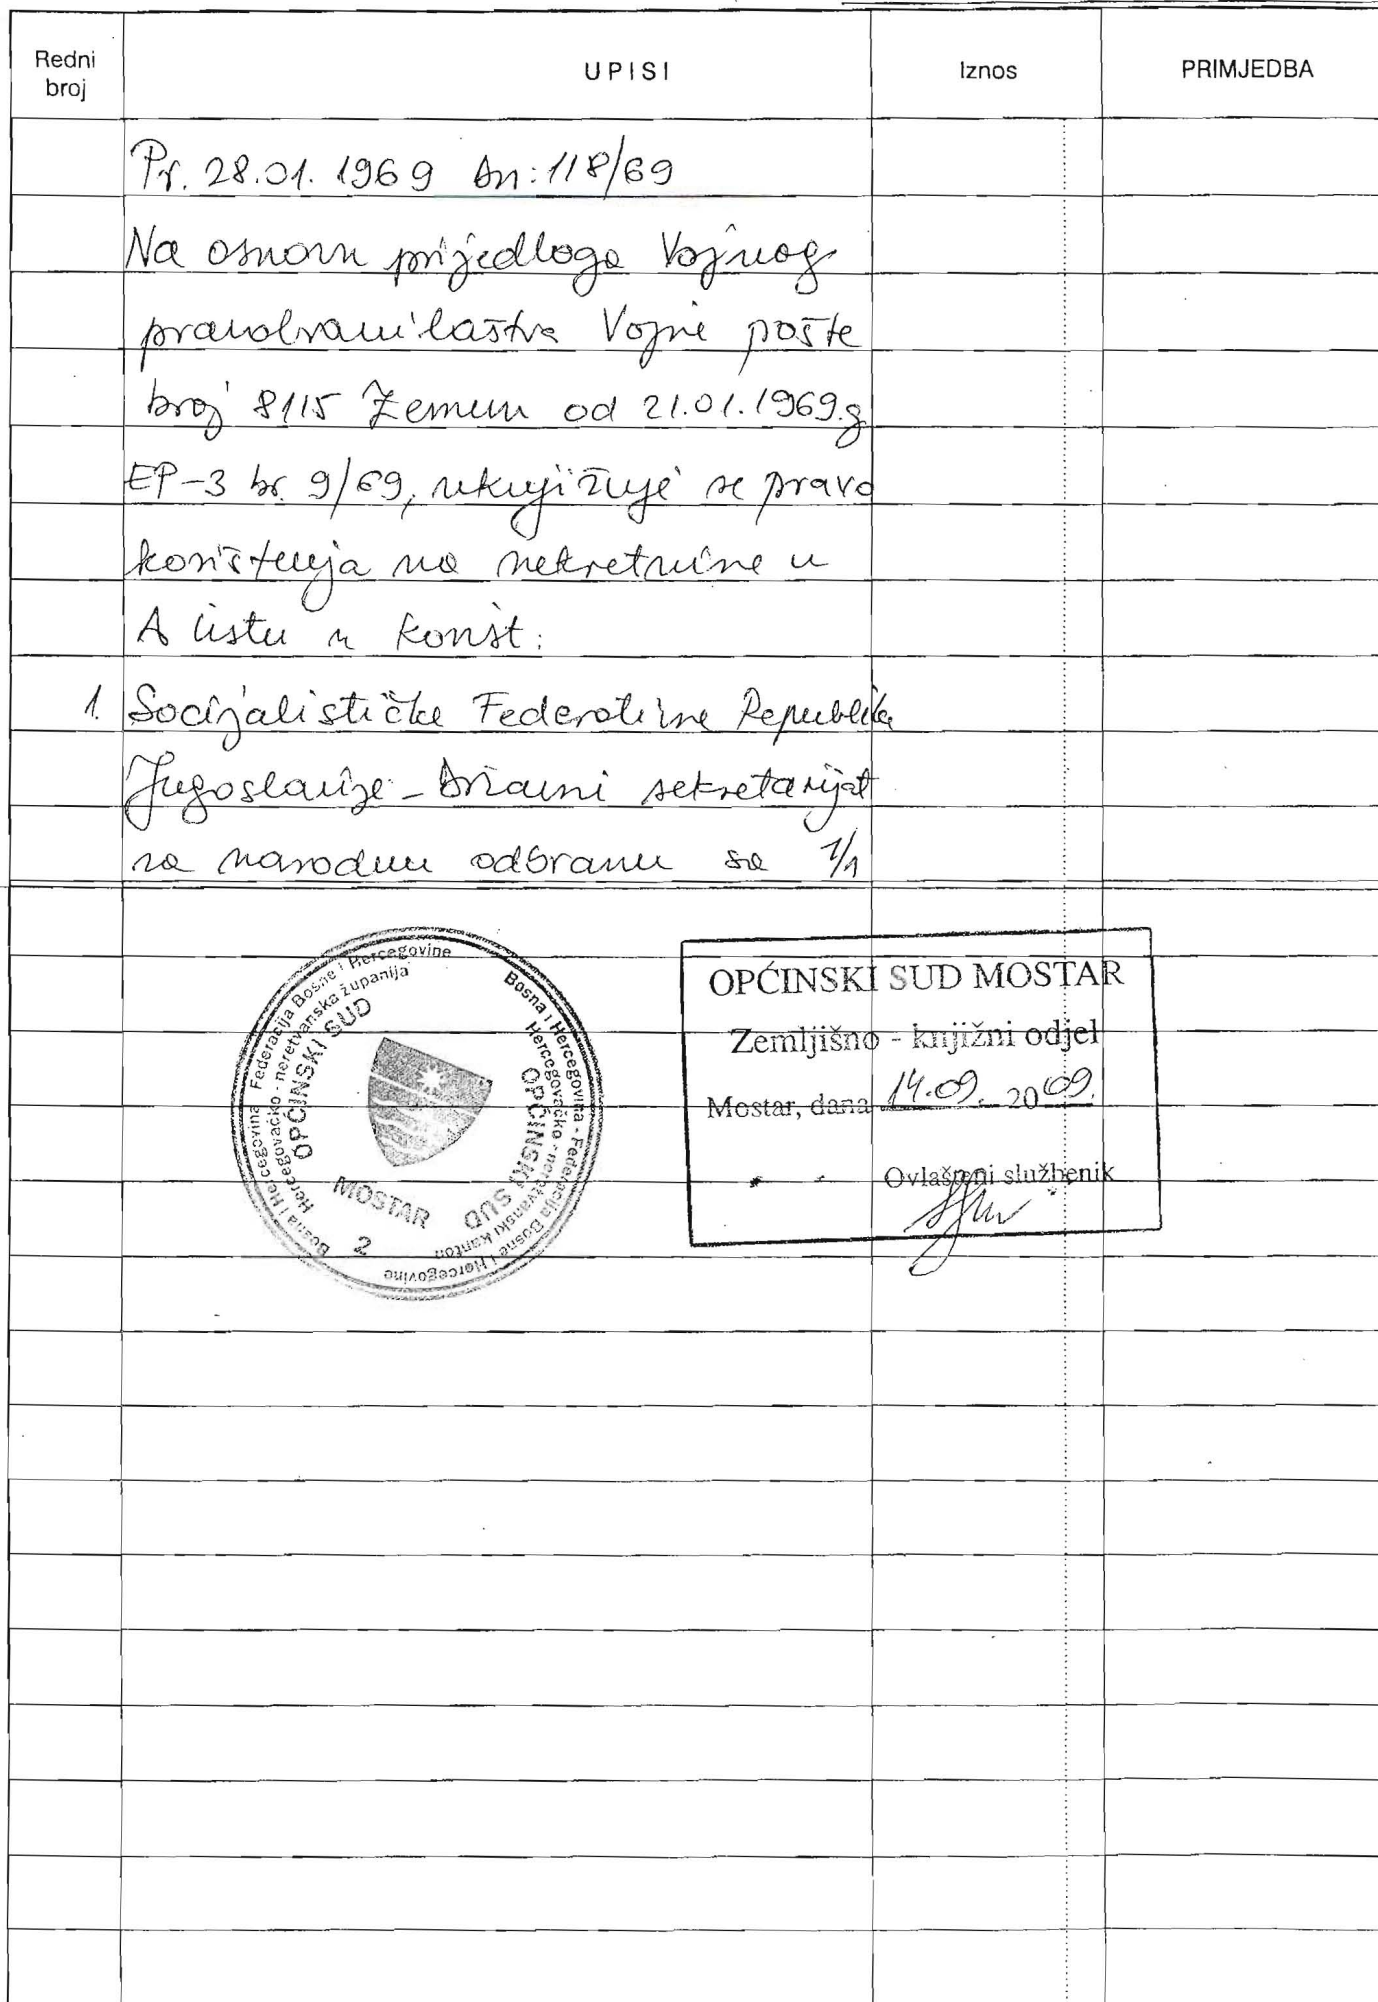 Redni broj
UPISI
Iznos
PRIMJEDBA
Pr. 28.01.1969 Dn: 118/69
Na osnovu prijedloga Vojnog
pravobranilaštva Vojne pošte
broj 8115 Zemun od 21.01.1969.g
EP-3 br. 9/69, uknjižuje se pravo
korištenja na nekretnine u
A listu u korist:
1. Socijalističke Federativne Republike
Jugoslavije - Državni sekretarijat
za narodnu odbranu sa 1/1
Bosna i Hercegovina - Federacija Bosne i Hercegovine
Hercegovačko - neretvanska županija
OPĆINSKI SUD
Bosna i Hercegovina - Federacija Bosne i Hercegovine
Hercegovačko - neretvanski kanton
OPĆINSKI SUD
MOSTAR
2
OPĆINSKI SUD MOSTAR
Zemljišno - knjižni odjel
Mostar, dana 14.09. 2009.
Ovlašteni službenik